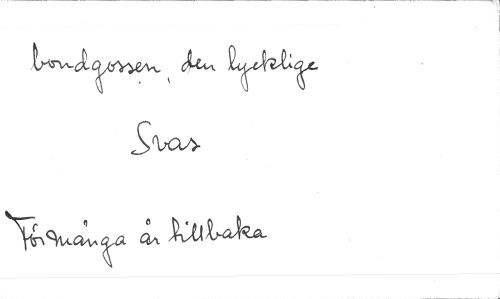 bondgossen, den lycklige
Svas
För många år tillbaka